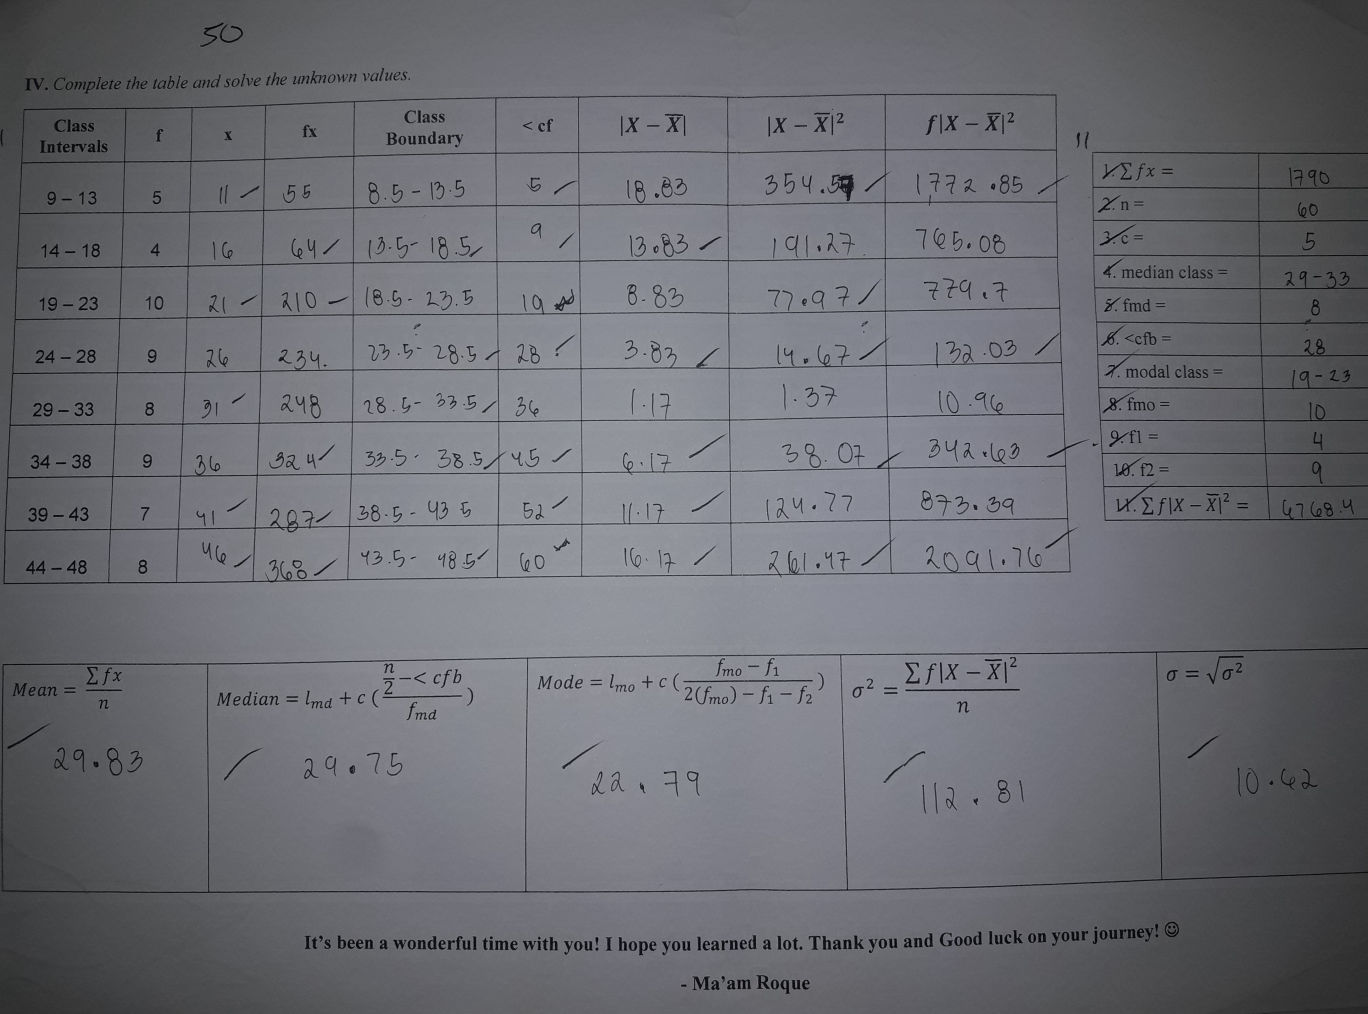 50
IV. Complete the table and solve the unknown values.
Class Intervals f x fx Class Boundary < cf |X − X̅| |X − X̅|² f|X − X̅|²
9 – 13 5 11 55 8.5 - 13.5 5 18.83 354.57 1772.85
14 – 18 4 16 64 13.5 - 18.5 9 13.83 191.27 765.08
19 – 23 10 21 210 18.5 - 23.5 19 8.83 77.97 779.7
24 – 28 9 26 234. 23.5 - 28.5 28 3.83 14.67 132.03
29 – 33 8 31 248 28.5 - 33.5 36 1.17 1.37 10.96
34 – 38 9 36 324 33.5 - 38.5 45 6.17 38.07 342.63
39 – 43 7 41 287 38.5 - 43.5 52 11.17 124.77 873.39
44 – 48 8 46 368 43.5 - 48.5 60 16.17 261.47 2091.76
11
1. ∑ fx = 1790
2. n = 60
3. c = 5
4. median class = 29-33
5. fmd = 8
6. <cfb = 28
7. modal class = 19-23
8. fmo = 10
9. f1 = 4
10. f2 = 9
11. ∑ f|X − X̅|² = 6768.4
Mean = ∑ fx / n
29.83
Median = lmd + c ( n/2 −< cfb / fmd )
29.75
Mode = lmo + c ( fmo − f1 / 2(fmo) − f1 − f2 )
22.79
σ² = ∑ f|X − X̅|² / n
112.81
σ = √σ²
10.62
It's been a wonderful time with you! I hope you learned a lot. Thank you and Good luck on your journey! ☺
- Ma'am Roque